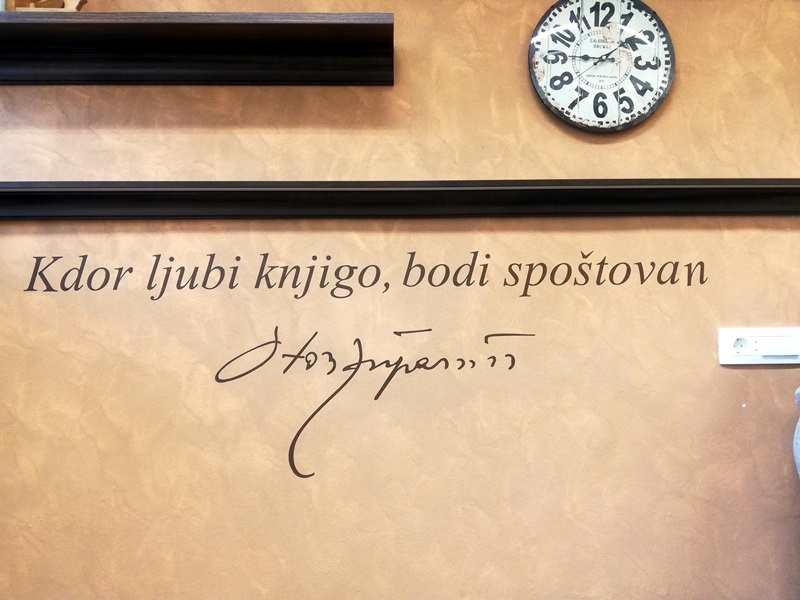 12
1
2
3
4
5
6
7
8
9
10
11
Kdor ljubi knjigo, bodi spoštovan
Oton Župančič